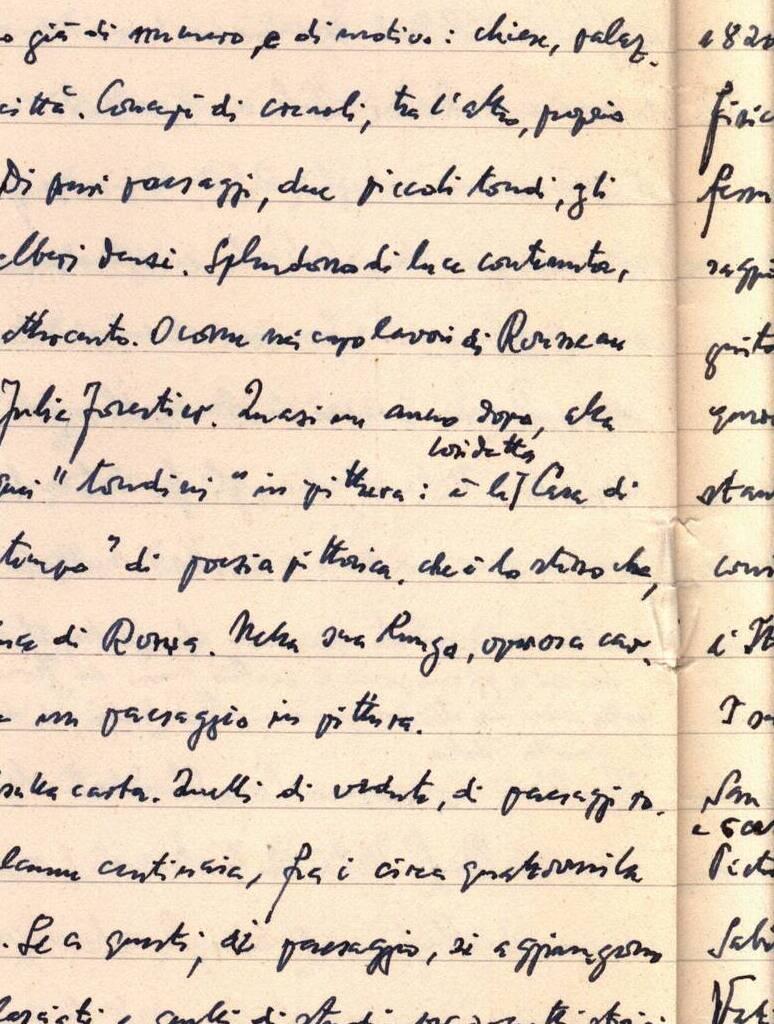 o già di numero, e di motivo: chiese, palaz-
città. Concepì di crearli, tra l'altro, proprio
Di puri paesaggi, due piccoli tondi, gli
alberi densi. Splendono di luce contenuta,
ottocento. O come nei capolavori di Rousseau
Julie Forestier. Quasi un anno dopo, alla
cosidetta
"tondini" in pittura: è la Casa di
tempo" di poesia pittorica, che è lo stesso che,
di Roma. Nella sua lunga, operosa car-
un paesaggio in pittura.
sulla carta. Quelli di vedute, di paesaggi so-
centinaia, fra i circa quattromila
. Se a questi, di paesaggio, si aggiungono
e quelli di studi
182
fisic
ferm
raggi
giusto
stan
com
è It
I
San
e son
Pietr
Sabi